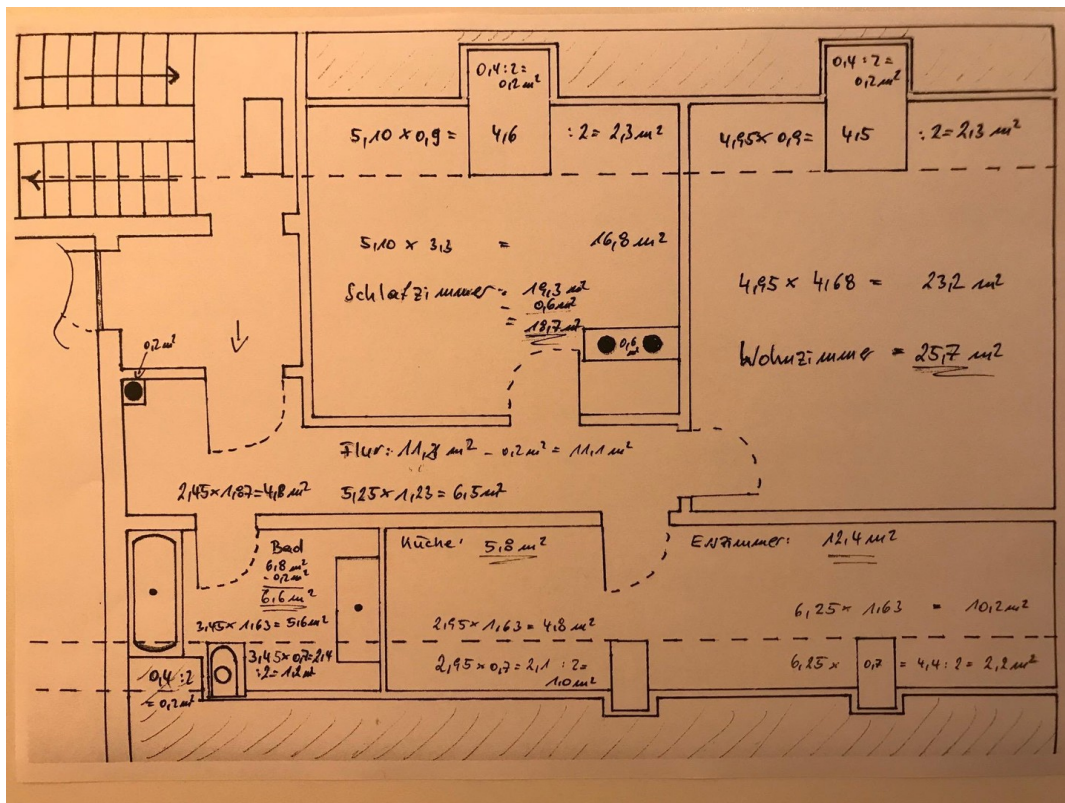 0,4 : 2 =
0,2 m²
5,10 × 0,9 = 4,6 : 2 = 2,3 m²
5,10 × 3,3 = 16,8 m²
Schlafzimmer = 19,3 m²
- 0,6 m²
= 18,7 m²
0,6 m²
0,4 : 2 =
0,2 m²
4,95 × 0,9 = 4,5 : 2 = 2,3 m²
4,95 × 4,68 = 23,2 m²
Wohnzimmer = 25,7 m²
0,2 m²
Flur: 11,3 m² - 0,2 m² = 11,1 m²
2,45 × 1,87 = 4,8 m²
5,25 × 1,23 = 6,5 m²
Bad
6,8 m²
- 0,2 m²
6,6 m²
3,45 × 1,63 = 5,6 m²
3,45 × 0,7 = 2,4
: 2 = 1,2 m²
0,4 : 2
= 0,2 m²
Küche: 5,8 m²
2,95 × 1,63 = 4,8 m²
2,95 × 0,7 = 2,1 : 2 =
1,0 m²
Eßzimmer: 12,4 m²
6,25 × 1,63 = 10,2 m²
6,25 × 0,7 = 4,4 : 2 = 2,2 m²